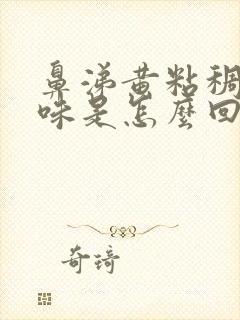 鼻涕黄粘稠
味是怎麽回
奇琦